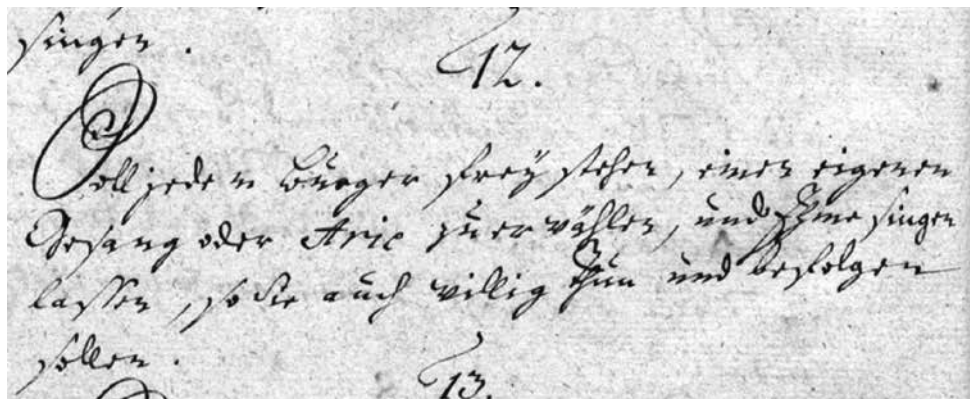 singen.
12.
Soll jedem burger freÿ stehen, einen eigenen
Gesang oder Arie zu erwählen, und Ihme singen
lassen, so sie auch willig thun und befolgen
sollen.
13.